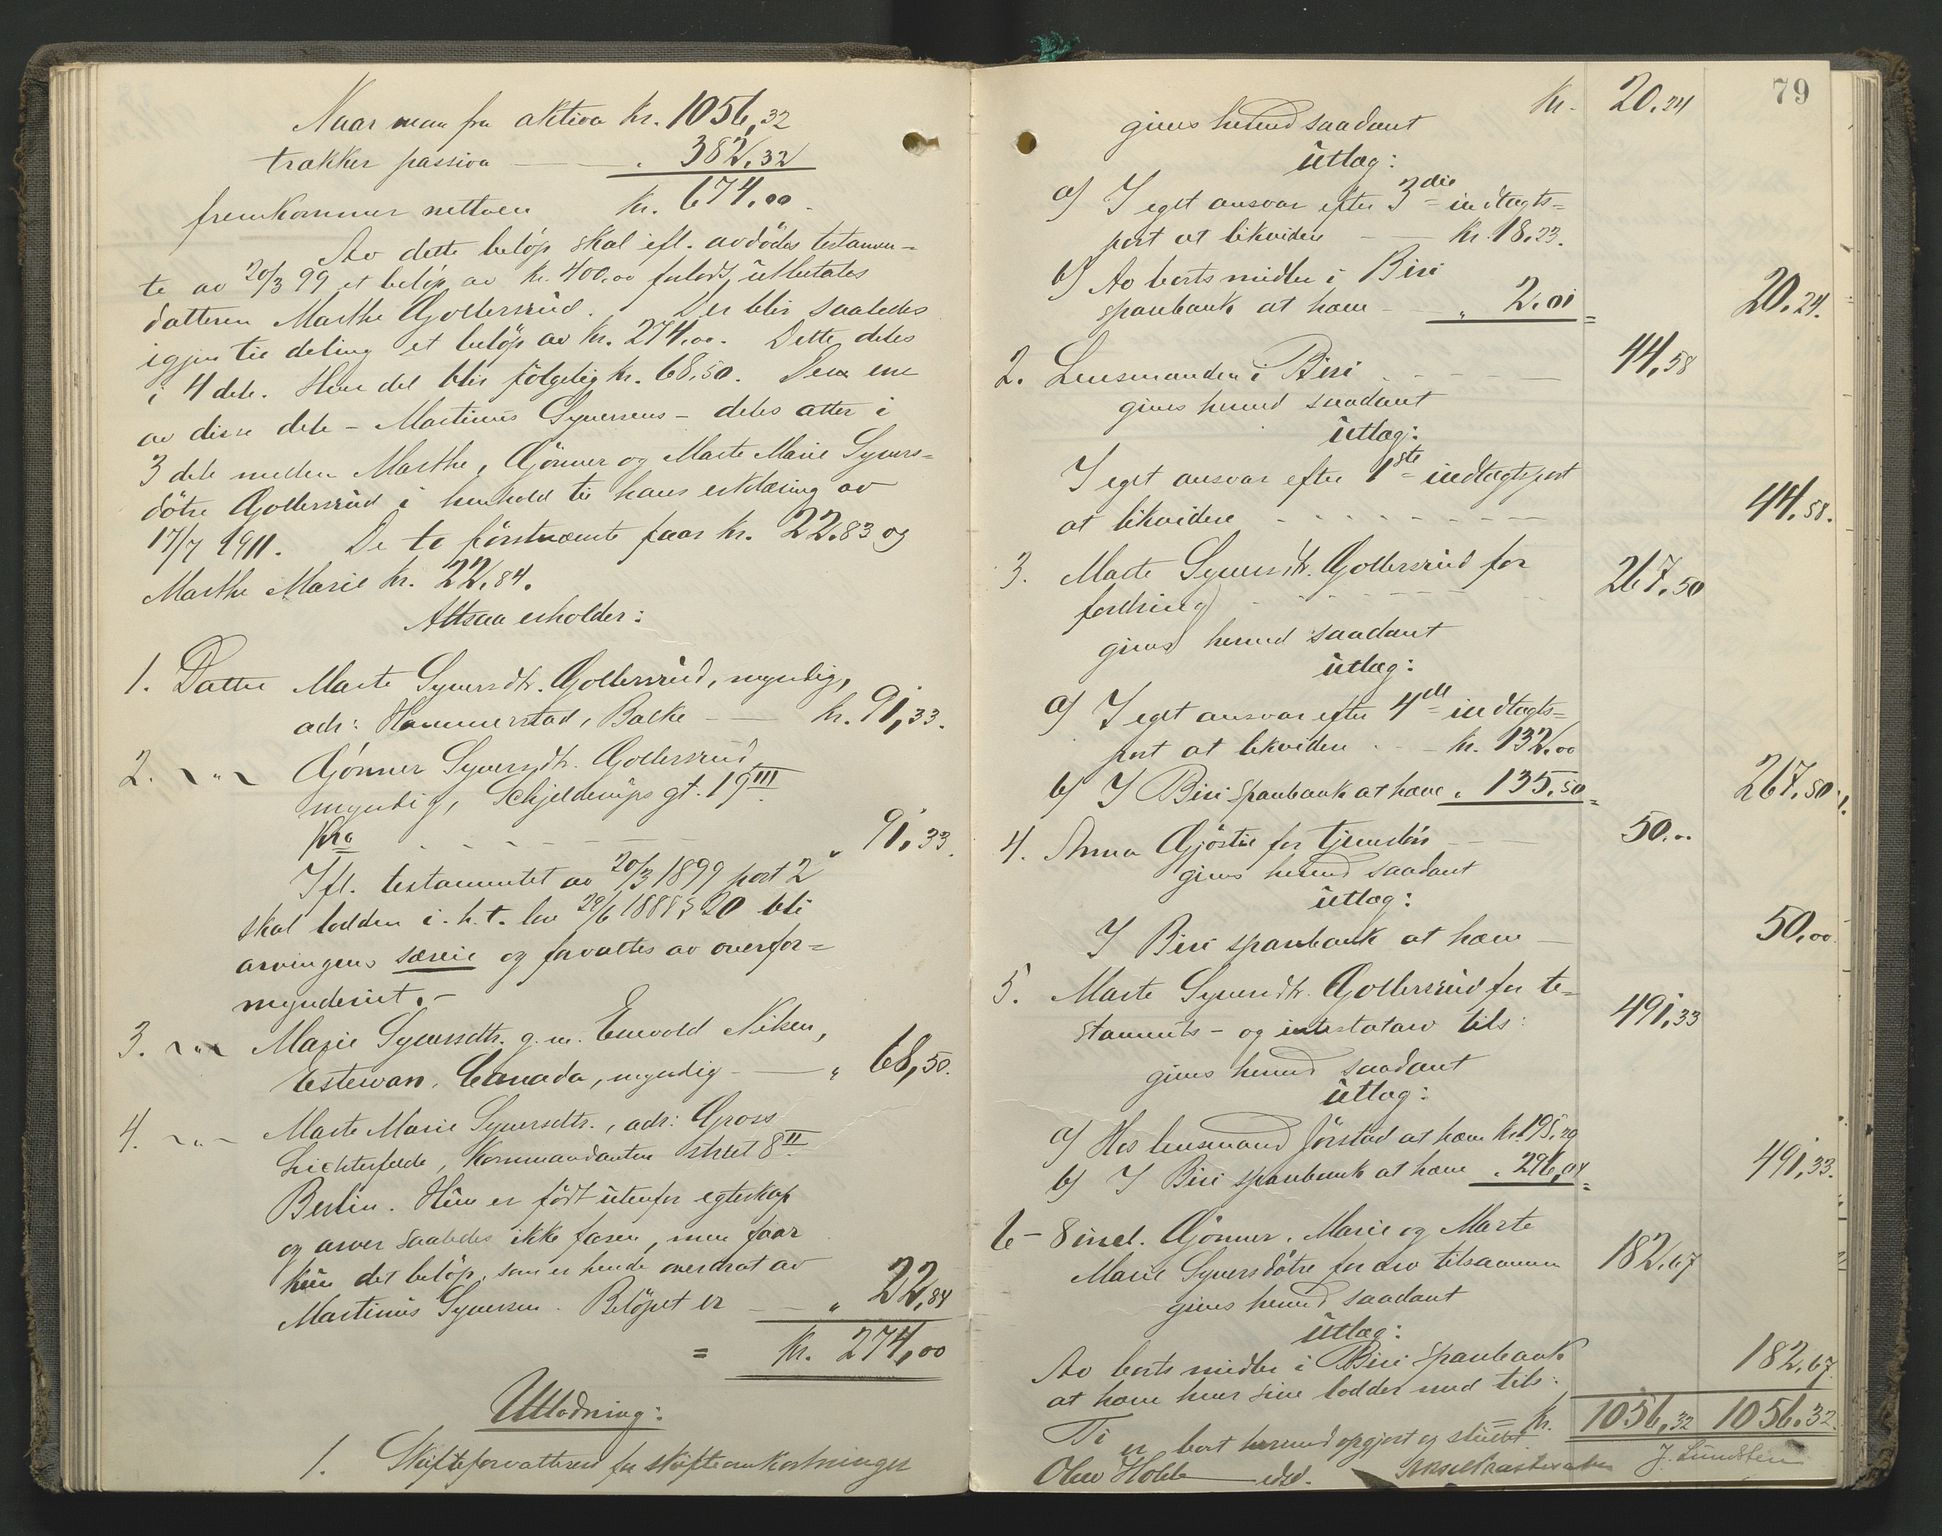 Naar man fra aktiva kr. 1056,32
trækker passiva — . 382,32
fremkommer nettoen kr. 674,00.
Av dette beløp skal ifl. avdødes testamen-
te av 20/3 99 et beløp av kr. 400,00 forlods utbetales
datteren Marthe Gollersrud. Der blir saaledes
igjen til deling et beløp av kr. 274,00. Dette deles
i 4 dele. Hver del blir følgelig kr. 68,50. Den ene
av disse dele – Martinus Syversens – deles atter i
3 dele mellem Marthe, Gjönner og Marte Marie Syvers=
døtre Gollersrud i henhold til hans erklæring av
17/7 1911. De to førstnævnte faar kr. 22,83 og
Marthe Marie kr. 22,84.
Altsaa erholder:
1. Datter Marte Syversdtr. Gollersrud, myndig,
adr: Hammerstad, Balke — kr. 91,33.
2. —"— Gjönner Syversdtr. Gollersrud
myndig, Schjelderups gt. 19 III
Kra — „ 91,33.
Ifl. testamentet av 20/3 1899 post 2
skal lodden i h. t. lov 29/6 1888 § 20 bli
arvingens særeie og forvaltes av overfor=
mynderiet.–
3. —"— Marie Syversdtr. g. m. Enevold Niksen,
Estevan, Canada, myndig — „ 68,50.
4. —"— Marte Marie Syversdtr., adr: Gross
Lichterfelde, Kommandanten street 8 II
Berlin. Hun er født utenfor egteskap
og arver saaledes ikke faren, men faar
kun det beløp, som er hende overdrat av
Martinus Syversen. Beløpet er — „ 22,84
= kr. 274,00
Utlodning:
1. Skifteforvalteren for skifteomkostninger
79
kr. 20,24
gives herved saadant
utlæg:
a) I eget ansvar efter 3die indtægts=
post at likvidere — kr. 18,23.
b) Av boets midler i Biri
sparebank at hæve — „ 2,01 =
20,24.
2. Lensmanden i Biri — 44,58
gives herved saadant
utlæg:
I eget ansvar efter 1ste indtægtspost
at likvidere — 44,58.
3. Marte Syversdtr. Gollersrud for
fordring — 267,50
gives herved saadant
utlæg:
a) I eget ansvar efter 4de indtægts=
post at likvidere — kr. 132,00
b) I Biri sparebank at hæve „ 135,50 =
267,50
4. Anna Gjöstie for tjenestløn — 50,00
gives herved saadant
utlæg:
I Biri sparebank at hæve — 50,00
5. Marte Syversdtr. Gollersrud for te=
staments- og intestatarv tils: 491,33
gives herved saadant
utlæg:
a) Hos lensmand Jørstad at hæve kr. 195,29
b) I Biri sparebank at hæve „ 296,04 =
491,33.
6 – 8 incl. Gjönner, Marie og Marte
Marie Syversdøtre for arv tilsammen 182,67
gives herved saadant
utlæg:
Av boets midler i Biri sparebank
at hæve hver sine lodder med tils: 182,67.
= kr. 1056,32 1056,32
Ti er boet herved opgjort og sluttet
Olav Holde edsv. J. Lundstein